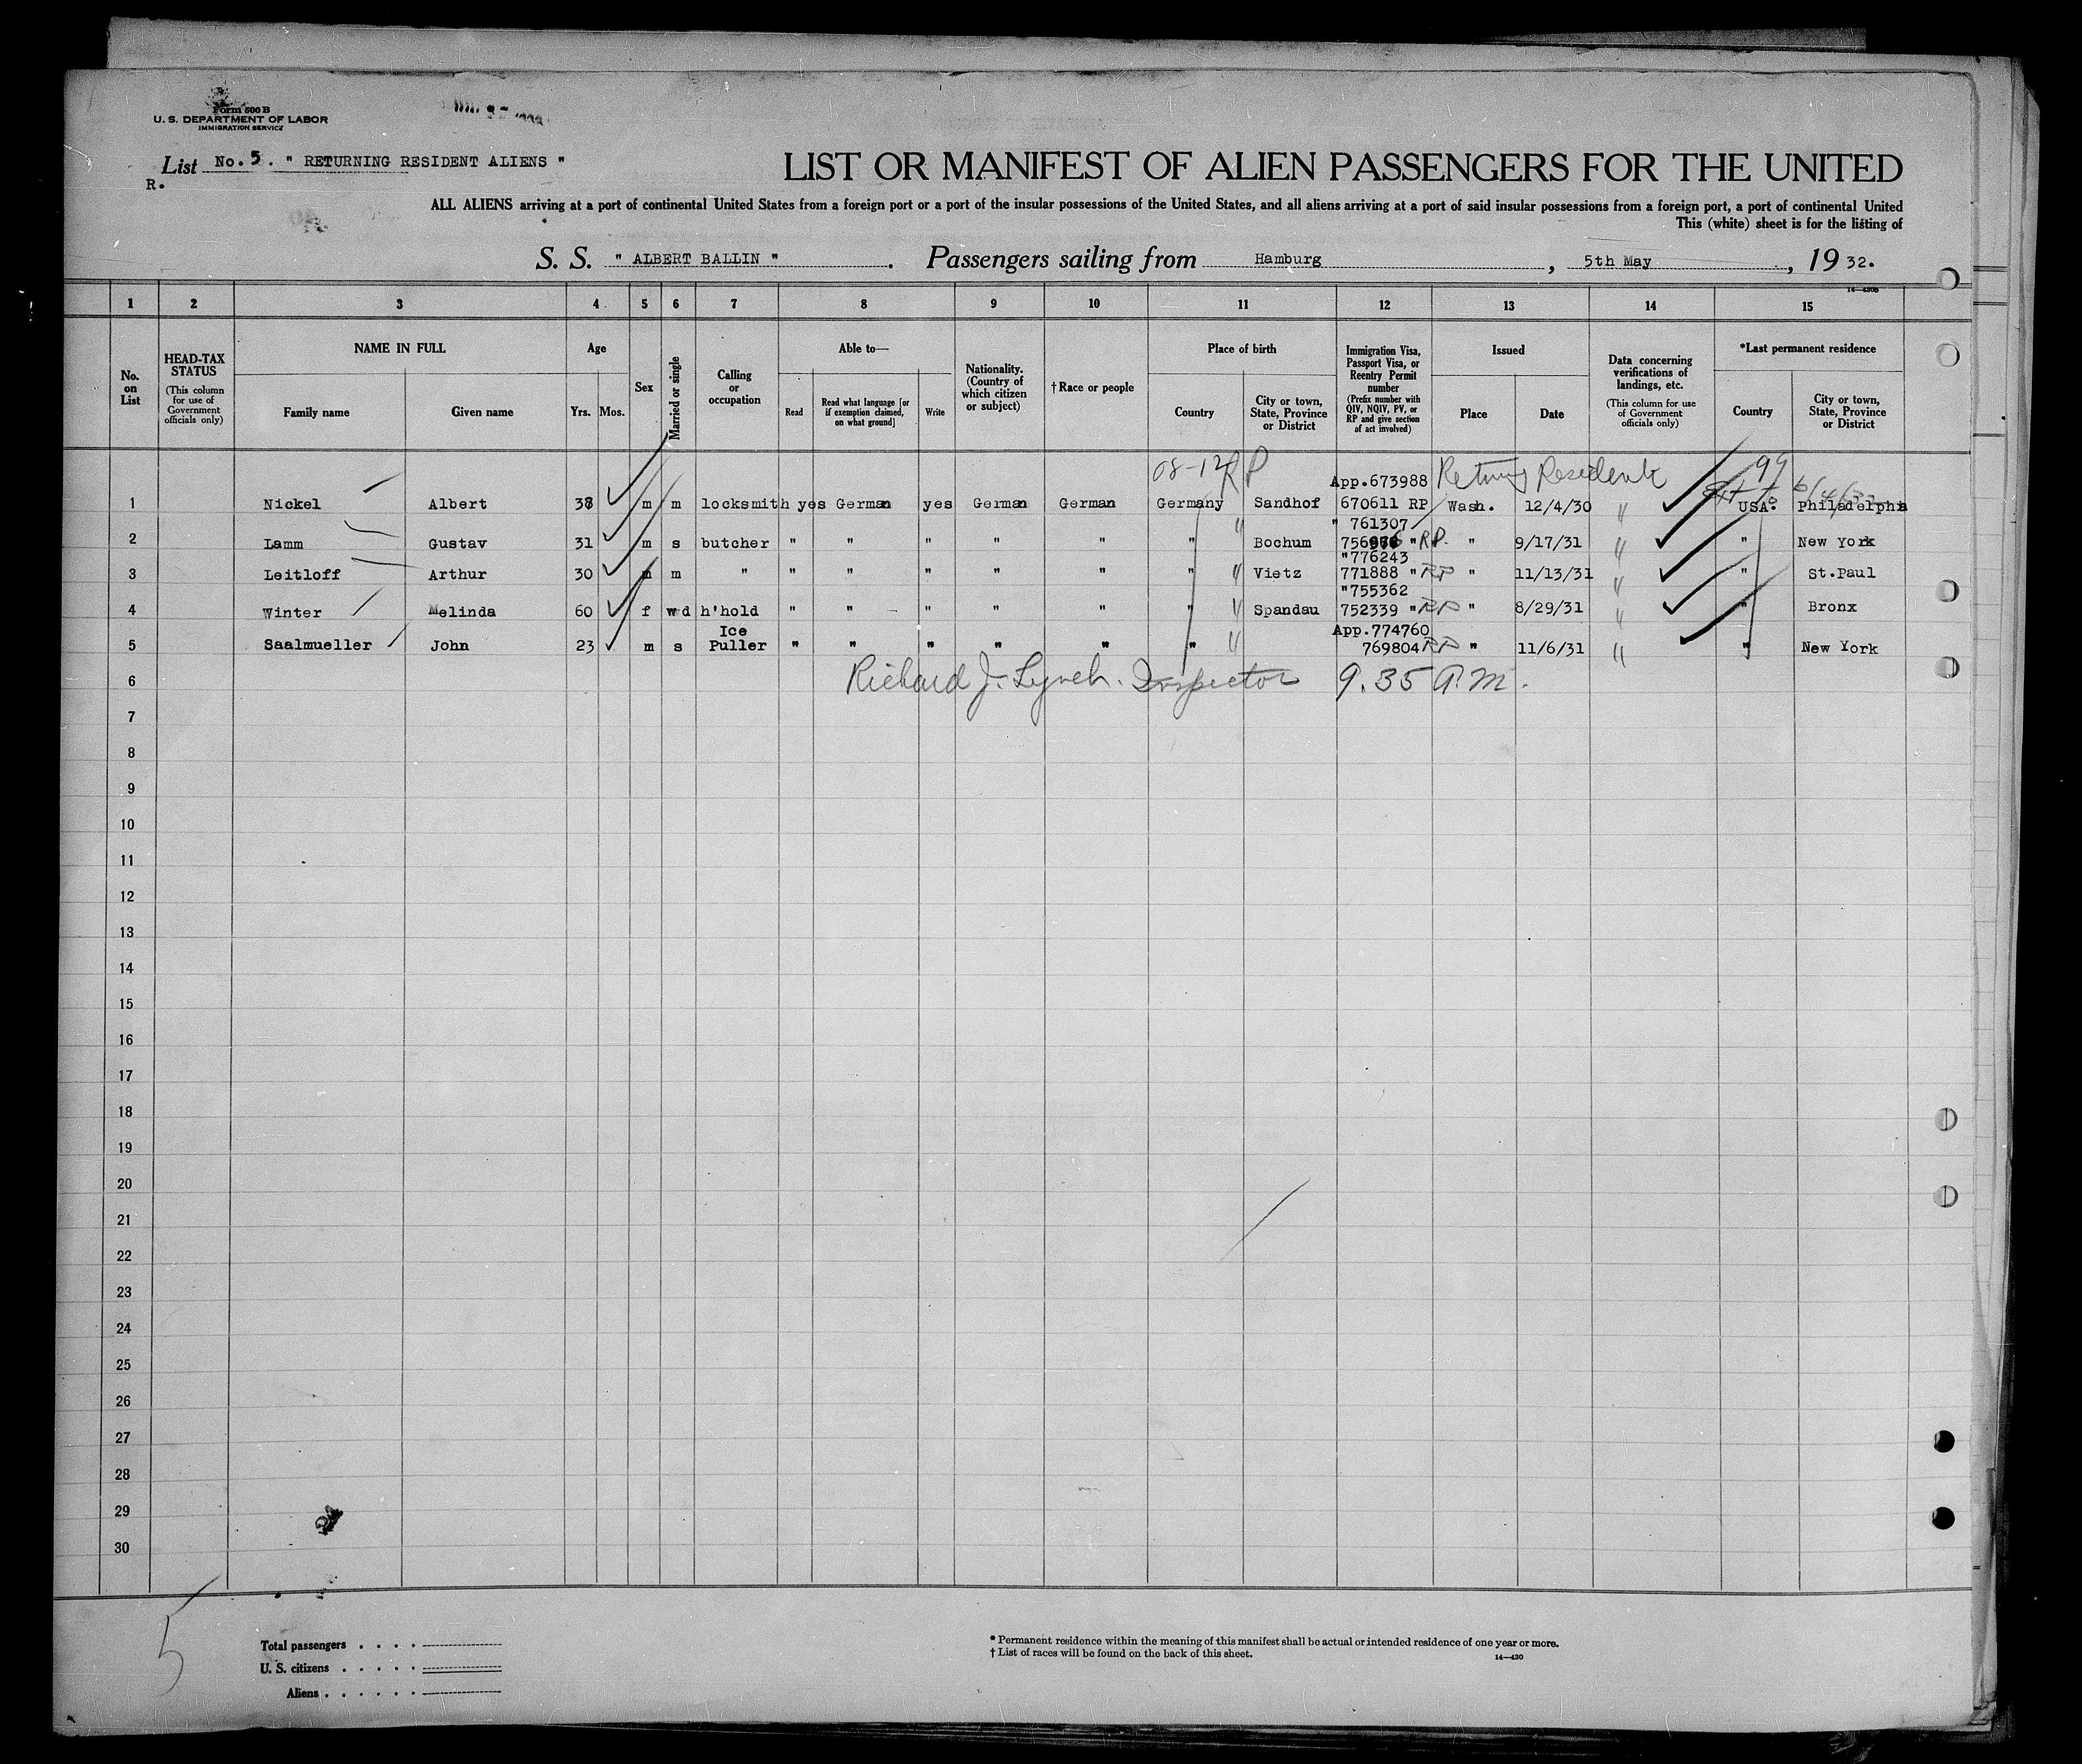 Form 500 B
U. S. DEPARTMENT OF LABOR
IMMIGRATION SERVICE
List No. 5. " RETURNING RESIDENT ALIENS "
R.
LIST OR MANIFEST OF ALIEN PASSENGERS FOR THE UNITED
ALL ALIENS arriving at a port of continental United States from a foreign port or a port of the insular possessions of the United States, and all aliens arriving at a port of said insular possessions from a foreign port, a port of continental United
This (white) sheet is for the listing of
S. S. " ALBERT BALLIN " . Passengers sailing from Hamburg , 5th May , 19 32.
1 2 3 4 5 6 7 8 9 10 11 12 13 14 15
No. on List
HEAD-TAX STATUS
(This column for use of Government officials only)
NAME IN FULL
Family name Given name
Age
Yrs. Mos.
Sex
Married or single
Calling or occupation
Able to—
Read
Read what language [or if exemption claimed, on what ground]
Write
Nationality. (Country of which citizen or subject)
†Race or people
Place of birth
Country
City or town, State, Province or District
Immigration Visa, Passport Visa, or Reentry Permit number
(Prefix number with QIV, NQIV, PV, or RP and give section of act involved)
Issued
Place Date
Data concerning verifications of landings, etc.
(This column for use of Government officials only)
*Last permanent residence
Country
City or town, State, Province or District
08-12 RP App.673988 Returng Residents 99
1 Nickel Albert 38 m m locksmith yes German yes German German Germany Sandhof 670611 RP Wash. 12/4/30 " USA. Philadelphia
" 761307
2 Lamm Gustav 31 m s butcher " " " " " " " Bochum RP. " 9/17/31 " " New York
"776243
3 Leitloff Arthur 30 m m " " " " " " " " Vietz 771888 " RP " 11/13/31 " " St.Paul
"755362
4 Winter Melinda 60 f wd h'hold " " " " " " " Spandau 752339 " RP " 8/29/31 " " Bronx
Ice App.774760
5 Saalmueller John 23 m s Puller " " " " " " " 769804 RP " 11/6/31 " " New York
6 Richard J. Lynch. Inspector 9.35 A.M.
7
8
9
10
11
12
13
14
15
16
17
18
19
20
21
22
23
24
25
26
27
28
29
30
5
Total passengers . . . .
U. S. citizens . . . . .
Aliens . . . . . .
* Permanent residence within the meaning of this manifest shall be actual or intended residence of one year or more.
† List of races will be found on the back of this sheet.
14—430